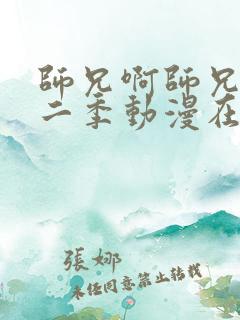 師兄啊師兄
二季動漫在
張娜
未經同意禁止轉載